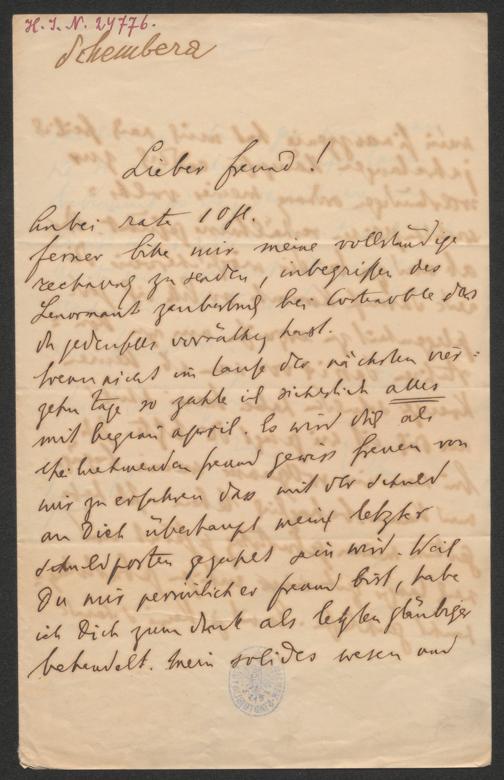 H. I. N. 24776.
Schembera
Lieber freund!
Anbei rate 10 fl.
ferner bitte mir meine vollständige
rechnung zu senden, inbegriffen des
Lenormant zauberbuch bei Costenoble das
du jedenfalls vorräthig hast.
wenn nicht im laufe der nächsten vier=
zehn tage so zahle ich sicherlich alles
mit beginn april. Es wird dich als
theilnehmenden freund gewiss freuen von
mir zu erfahren dass mit der schuld
an Dich überhaupt mein letzter
schuldposten gezahlt sein wird. Weil
Du mir persönlicher freund bist, habe
ich Dich zum dank als letzten gläubiger
behandelt. Mein solides wesen und